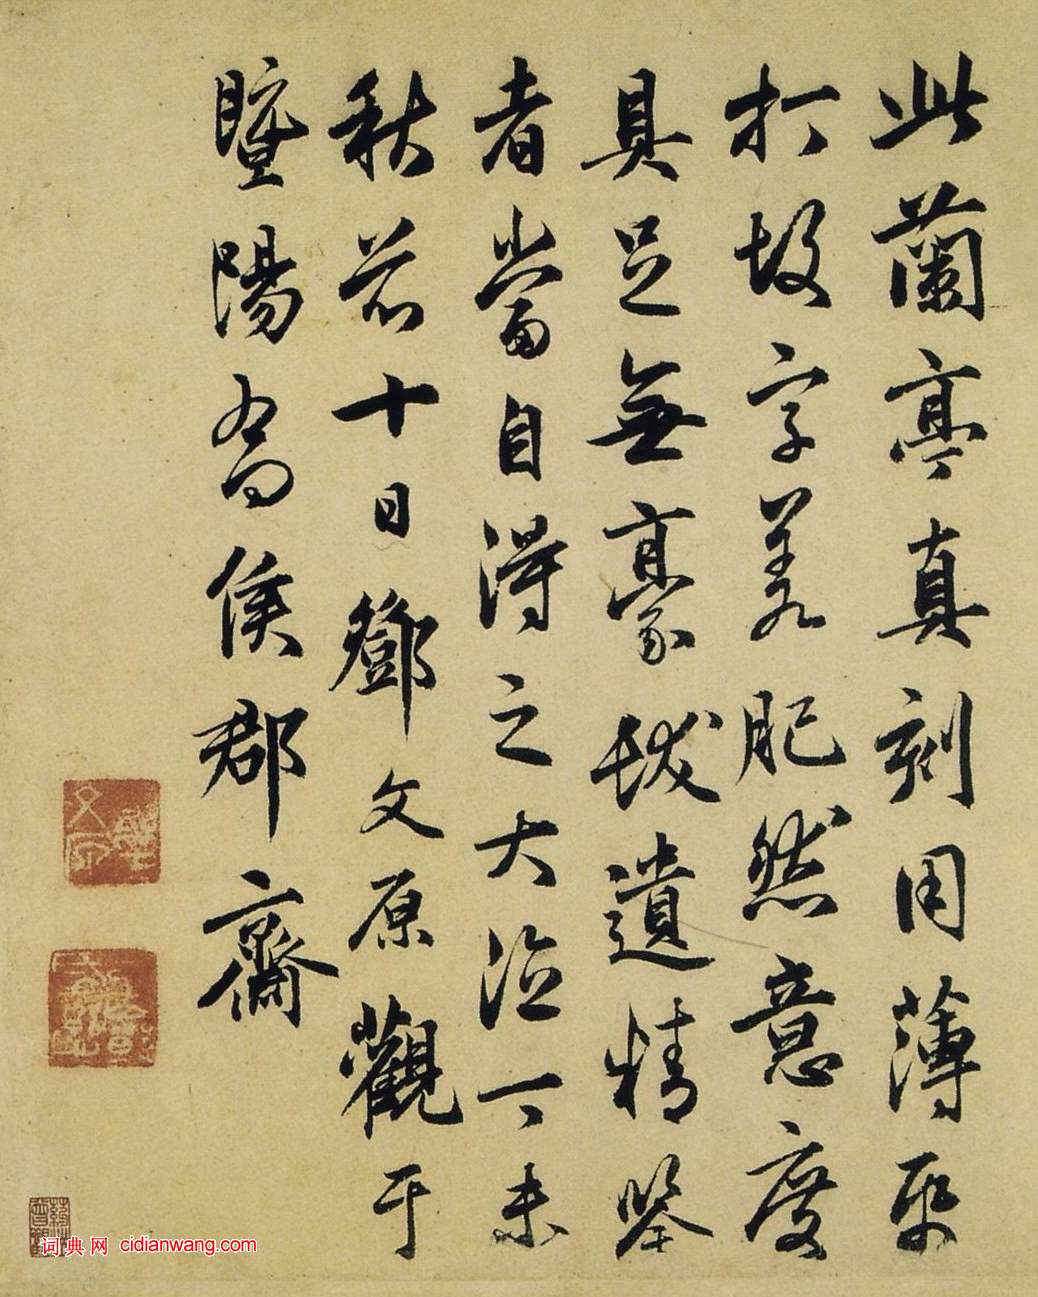 此蘭亭真刻用薄纸
打故字差肥然意度
具足無豪𩬊遺精鋻
者當自得之大德丁未
秋前十日鄧文原觀于
暨陽喬侯郡齋
词典网 cidianwang.com